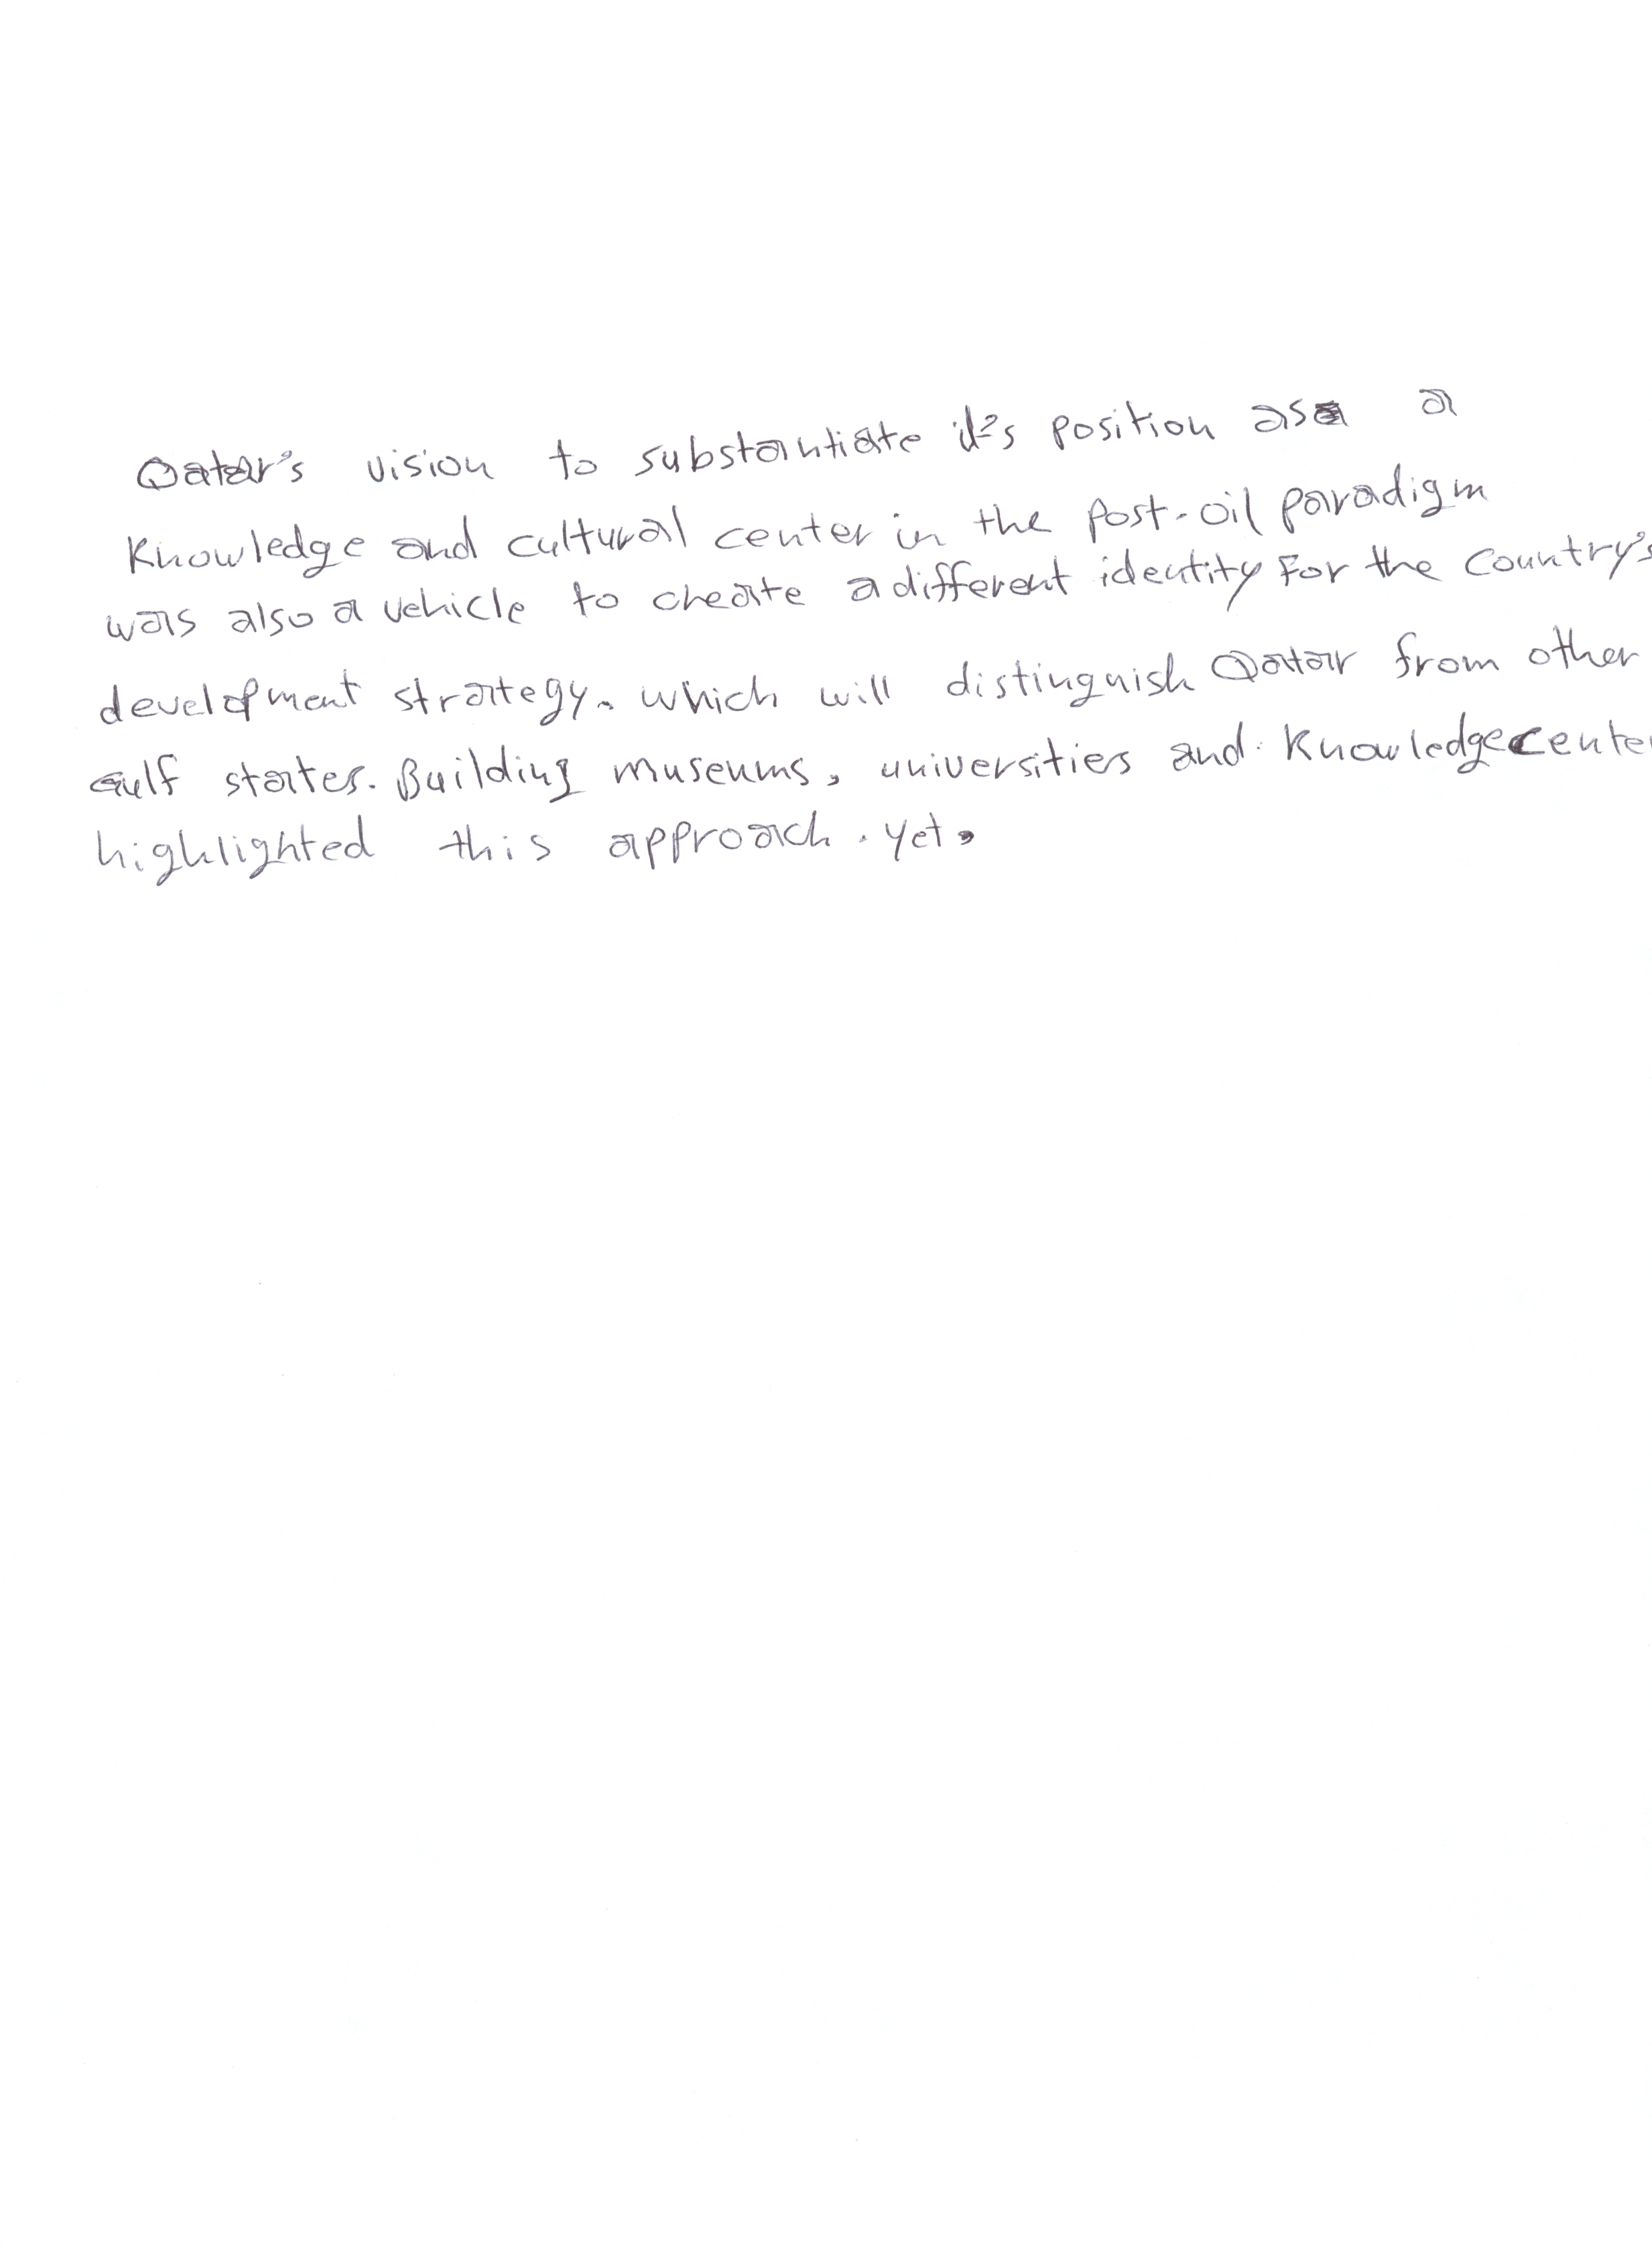 Qatar's vision to substantiate it's position as a
Knowledge and cultural center in the post-oil paradigm
was also a vehicle to create a different identity For the Country's
development strategy. which will distinguish Qatar from other
Gulf states. Building museums, universities and Knowledge cente
highlighted this approach. yet,